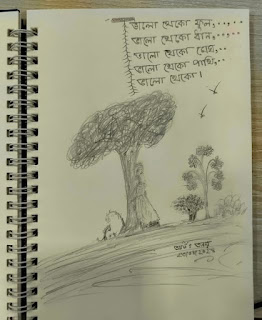 ভালো থেকো ফুল,..,..
ভালো থেকো ধান,..,..
ভালো থেকো মেঘ,..
ভালো থেকো পাখি,..
ভালো থেকো।